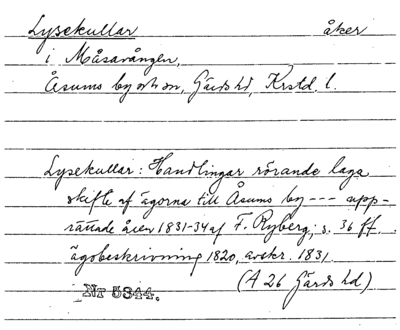 Lysekullar åker
i Måsavången,
Åsums by o sn, Gärds hd, Krstd. l.
Lysekullar: Handlingar rörande laga
skifte af ägorna till Åsums by --- upp-
rättade åren 1831-34 af F. Ryberg; s. 36 ff.
ägobeskrivning 1820, avskr. 1831
(A 26 Gärds hd)
Nr 5344.